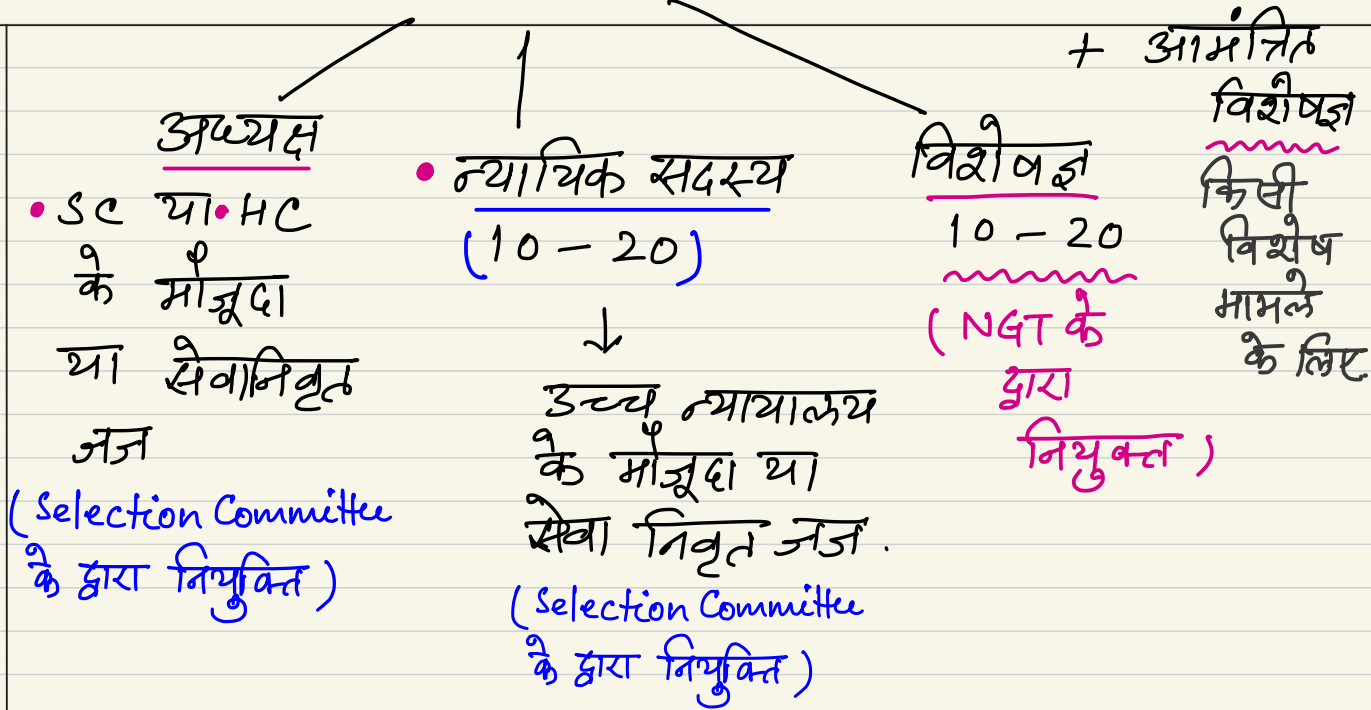 अध्यक्ष
• SC या • HC
के मौजूदा
या सेवानिवृत
जज
(Selection Committee
के द्वारा नियुक्ति)
• न्यायिक सदस्य
(10 – 20)
↓
उच्च न्यायालय
के मौजूदा या
सेवा निवृत जज.
(Selection Committee
के द्वारा नियुक्ति)
विशेषज्ञ
10 – 20
(NGT के
द्वारा
नियुक्त)
+ आमंत्रित
विशेषज्ञ
किसी
विशेष
मामले
के लिए